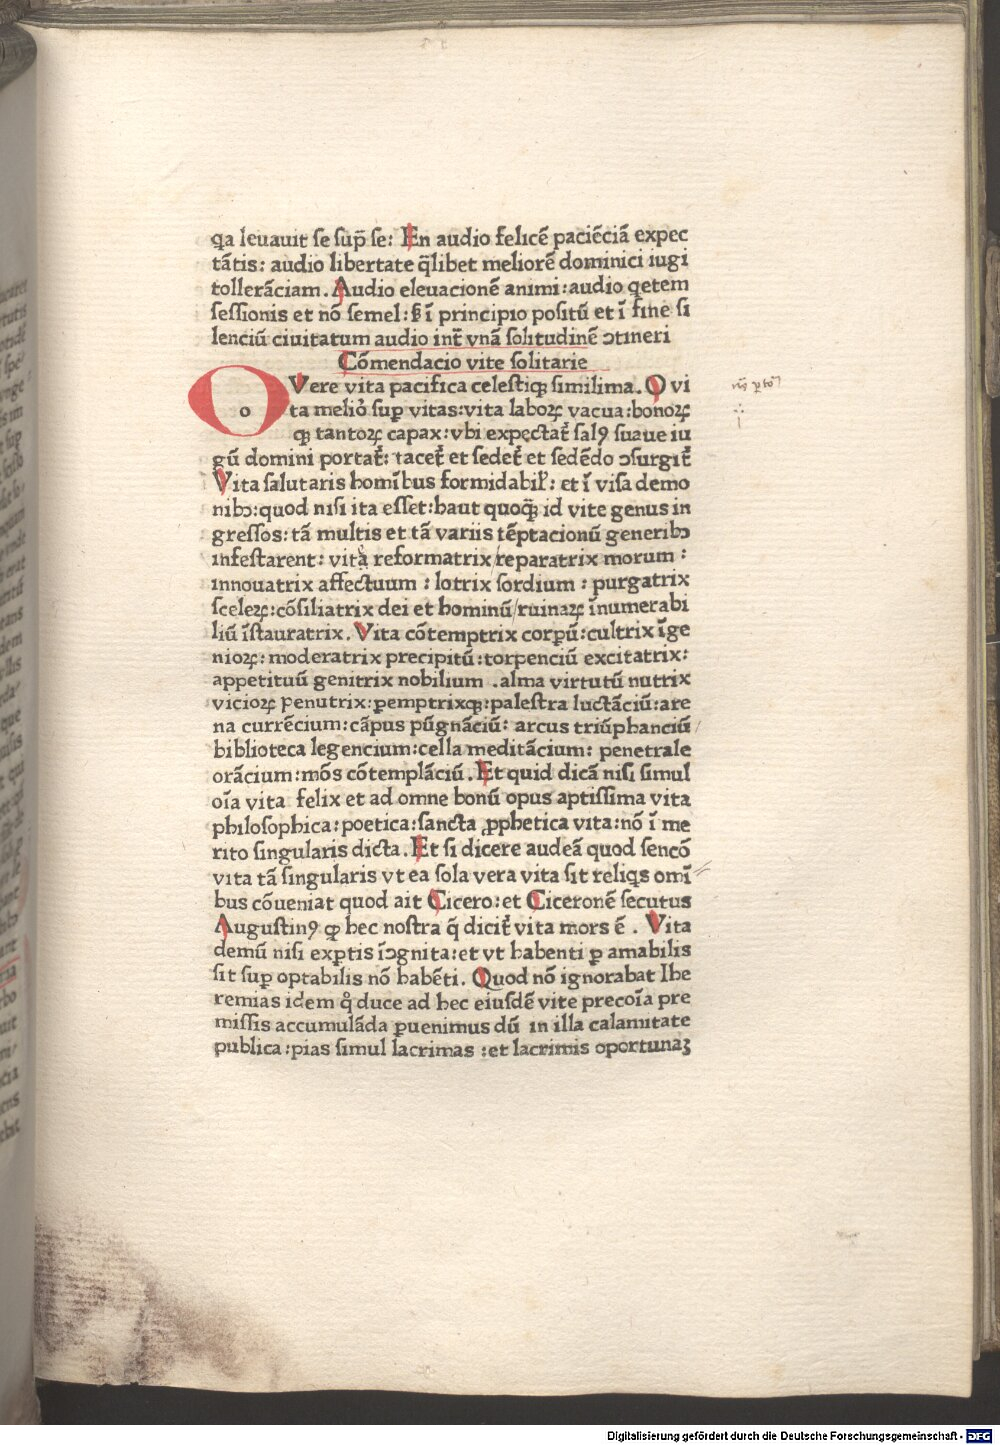 qa leuauit se sup̄ se: En audio felicē paciēciā expec
tātis: audio libertate q̄libet meliorē dominici iugi
tollerāciam. Audio eleuacionē animi: audio qetem
sessionis et nō semel: ꟗ ī principio positū et ī fine si
lenciū ciuitatum audio int̄ vnā solitudinē ↄtineri
Cōmendacio vite solitarie
O Vere vita pacifica celestiqꝫ similima. O vi
o ta melioꝰ suꝑ vitas: vita laboꝝ vacua: bonoꝝ
qꝫ tantoꝝ capax: vbi expectat̄ salꝰ suaue iu
gū domini portat̄: tacet̄ et sedet̄ et sedēdo ↄsurgit̄
Vita salutaris homībus formidabil̓: et ī visa demo
nibꝫ: quod nisi ita esset: haut quoqꝫ̄ id vite genus in
gressos: tā multis et tā variis tēptacionū generibꝫ
infestarent: vita reformatrix/reparatrix morum:
innouatrix affectuum: lotrix sordium: purgatrix
sceleꝝ: cōsiliatrix dei et hominū/ruinaꝝ īnumerabi
liū īstauratrix. Vita cōtemptrix corpꝝū: cultrix īge
nioꝝ: moderatrix precipitū: torpenciū excitatrix:
appetituū genitrix nobilium .alma virtutū nutrix
vicioꝝ penutrix: ꝑemptrixqꝫ: palestra luctāciū: are
na currēcium: cāpus pūgnāciū: arcus triūphanciū
biblioteca legencium: cella meditācium: penetrale
orācium: mōs cōtemplāciū. Et quid dicā nisi simul
oīa vita felix et ad omne bonū opus aptissima vita
philosophica: poetica: sancta ꝓphetica vita: nō ī me
rito singularis dicta. Et si dicere audeā quod sencō
vita tā singularis vt ea sola vera vita sit reliqs omī
bus cōueniat quod ait Cicero: et Ciceronē secutus
Augustinꝰ qꝫ hec nostra q̄ dicit̄ vita mors ē . Vita
demū nisi exꝑtis īↄgnita: et vt habenti ꝑ amabilis
sit suꝑ optabilis nō habēti. Quod nō ignorabat Ihe
remias idem q̊ duce ad hec eiusdē vite precoīa pre
missis accumulāda ꝑuenimus dū in illa calamitate
publica: pias simul lacrimas : et lacrimis oportunaꝫ
Digitalisierung gefördert durch die Deutsche Forschungsgemeinschaft - DFG